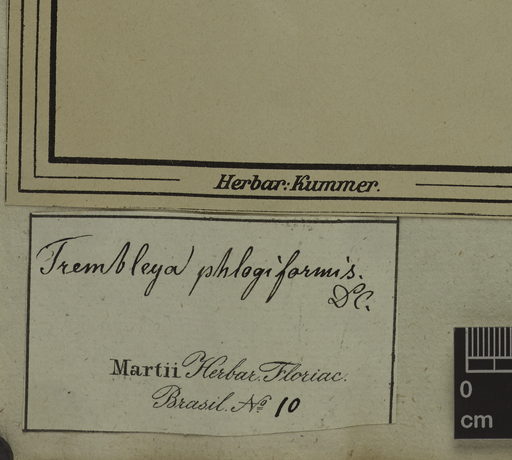 Herbar: Kummer.
Trembleya phlogiformis.
DC.
Martii Herbar. Floriae.
Brasil. No 10
0
cm